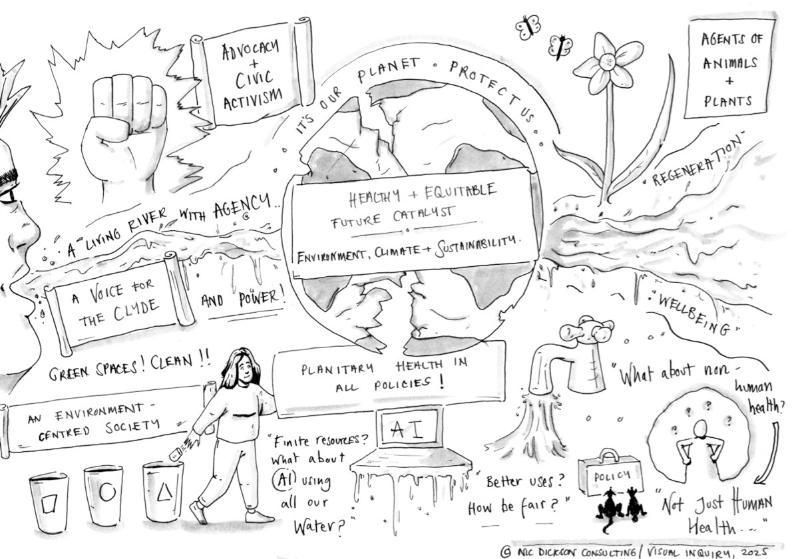 ADVOCACY
+
CIVIC
ACTIVISM
IT'S OUR PLANET · PROTECT US...
AGENTS OF
ANIMALS
+
PLANTS
HEALTHY + EQUITABLE
FUTURE CATALYST
ENVIRONMENT, CLIMATE + SUSTAINABILITY.
"REGENERATION"
A "LIVING RIVER WITH AGENCY...
A VOICE FOR
THE CLYDE
AND POWER!
"WELLBEING"
GREEN SPACES! CLEAN!!
AN ENVIRONMENT-
CENTRED SOCIETY
PLANITARY HEALTH IN
ALL POLICIES!
AI
"Finite resources?
what about
AI using
all our
Water?"
"Better uses?
How be fair?"
POLICY
"What about non-
human
health?
? ? ? ?
"Not Just HUMAN
Health...."
© NIC DICKSON CONSULTING/ VISUAL INQUIRY, 2025